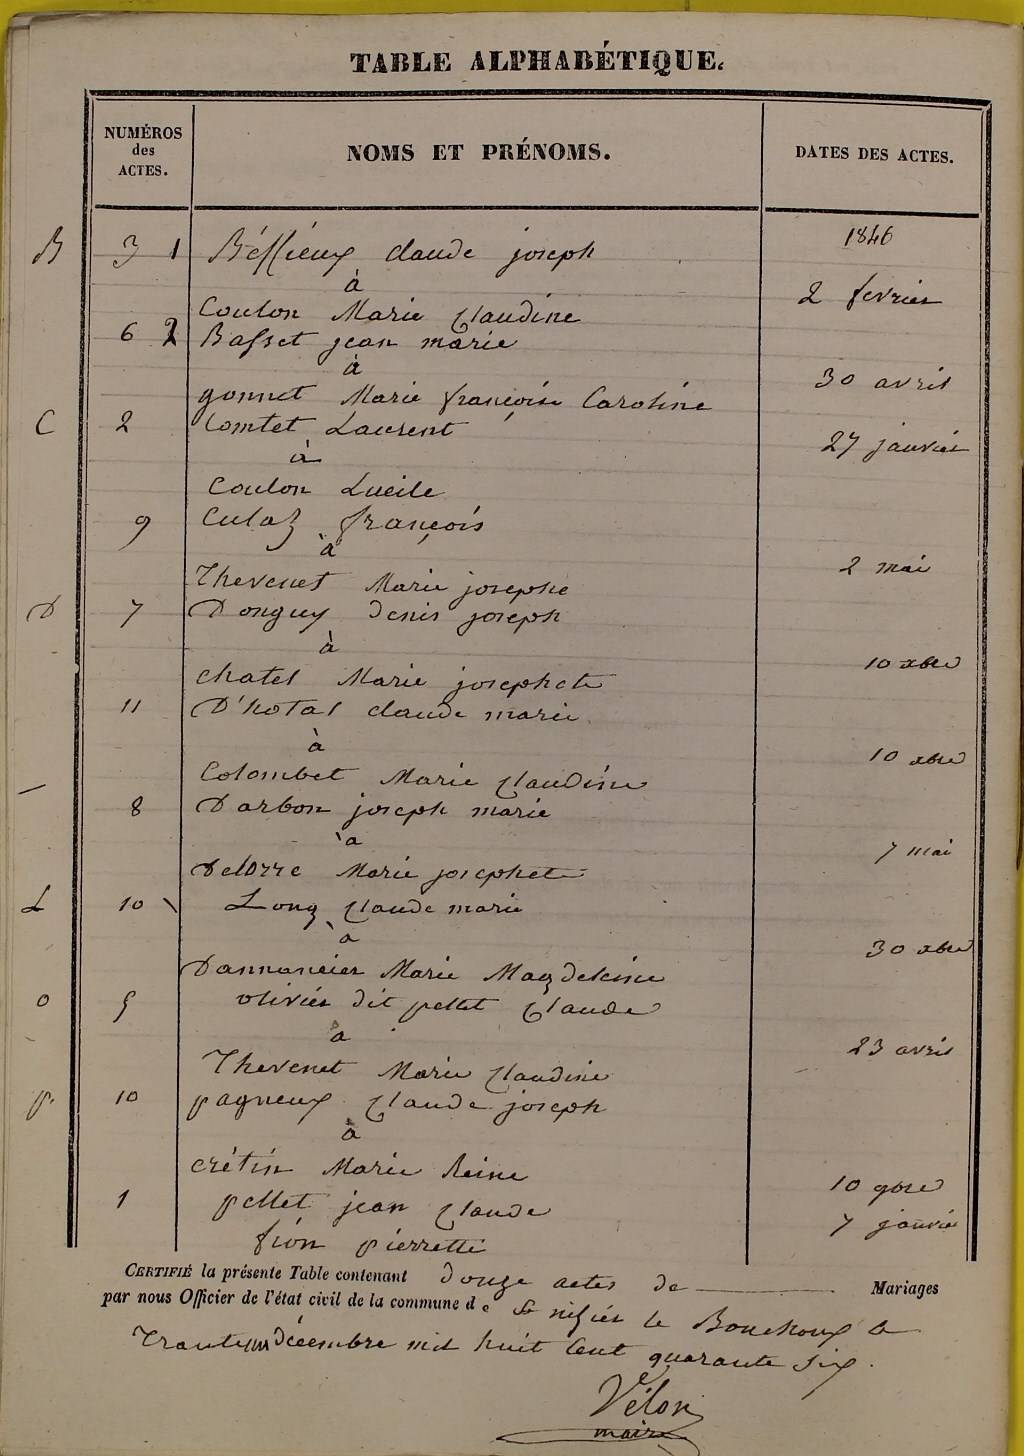 TABLE ALPHABÉTIQUE.
NUMÉROS des ACTES. NOMS ET PRÉNOMS. DATES DES ACTES.
1846
B 3 1 Béssieux claude joseph
à 2 fevrier
Coulon Marie Claudine
6 2 Basset jean marie
à 30 avril
gonnet Marie françoise Caroline
C 2 Comtet Laurent 27 janvier
à
Coulon Lucile
9 Culaz françois
à 2 mai
Thevenet Marie josephe
D 7 Donguy Denis joseph
à 10 xbre
chatel Marie josephete
11 D'hotal claude marie
à 10 xbre
Colombet Marie Claudine
8 Darbon joseph marie
à 7 mai
Delorre Marie josephete
L 10 Long Claude marie
à 30 xbre
Dannancier Marie Magdeleine
o 5 olivier dit pellet Claude
a 23 avril
Thevenet Marie Claudine
p. 10 pagneux Claude joseph
à
crétin Marie Reine 10 9bre
1 pellet jean Claude 7 janvier
fion pierrette
CERTIFIÉ la présente Table contenant douze actes de Mariages
par nous Officier de l'état civil de la commune de le Bouchoux le
décembre mil huit Cent quarante six.
maire